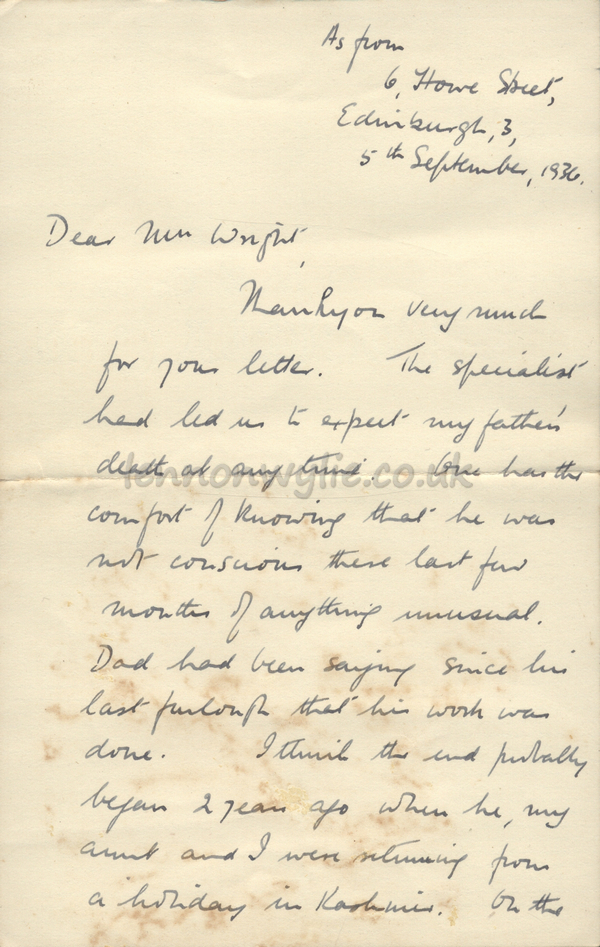 As from
6, Howe Street,
Edinburgh, 3,
5th September, 1936.
Dear Mrs Wright,
Thank you very much
for your letter. The specialist
had led us to expect my father's
death at any time. One has the
lennonwylie.co.uk
comfort of knowing that he was
not conscious these last few
months of anything unusual.
Dad had been saying since his
last furlough that his work was
done. I think the end probably
began 2 years ago when he, my
aunt and I were returning from
a holiday in Kashmir. On the